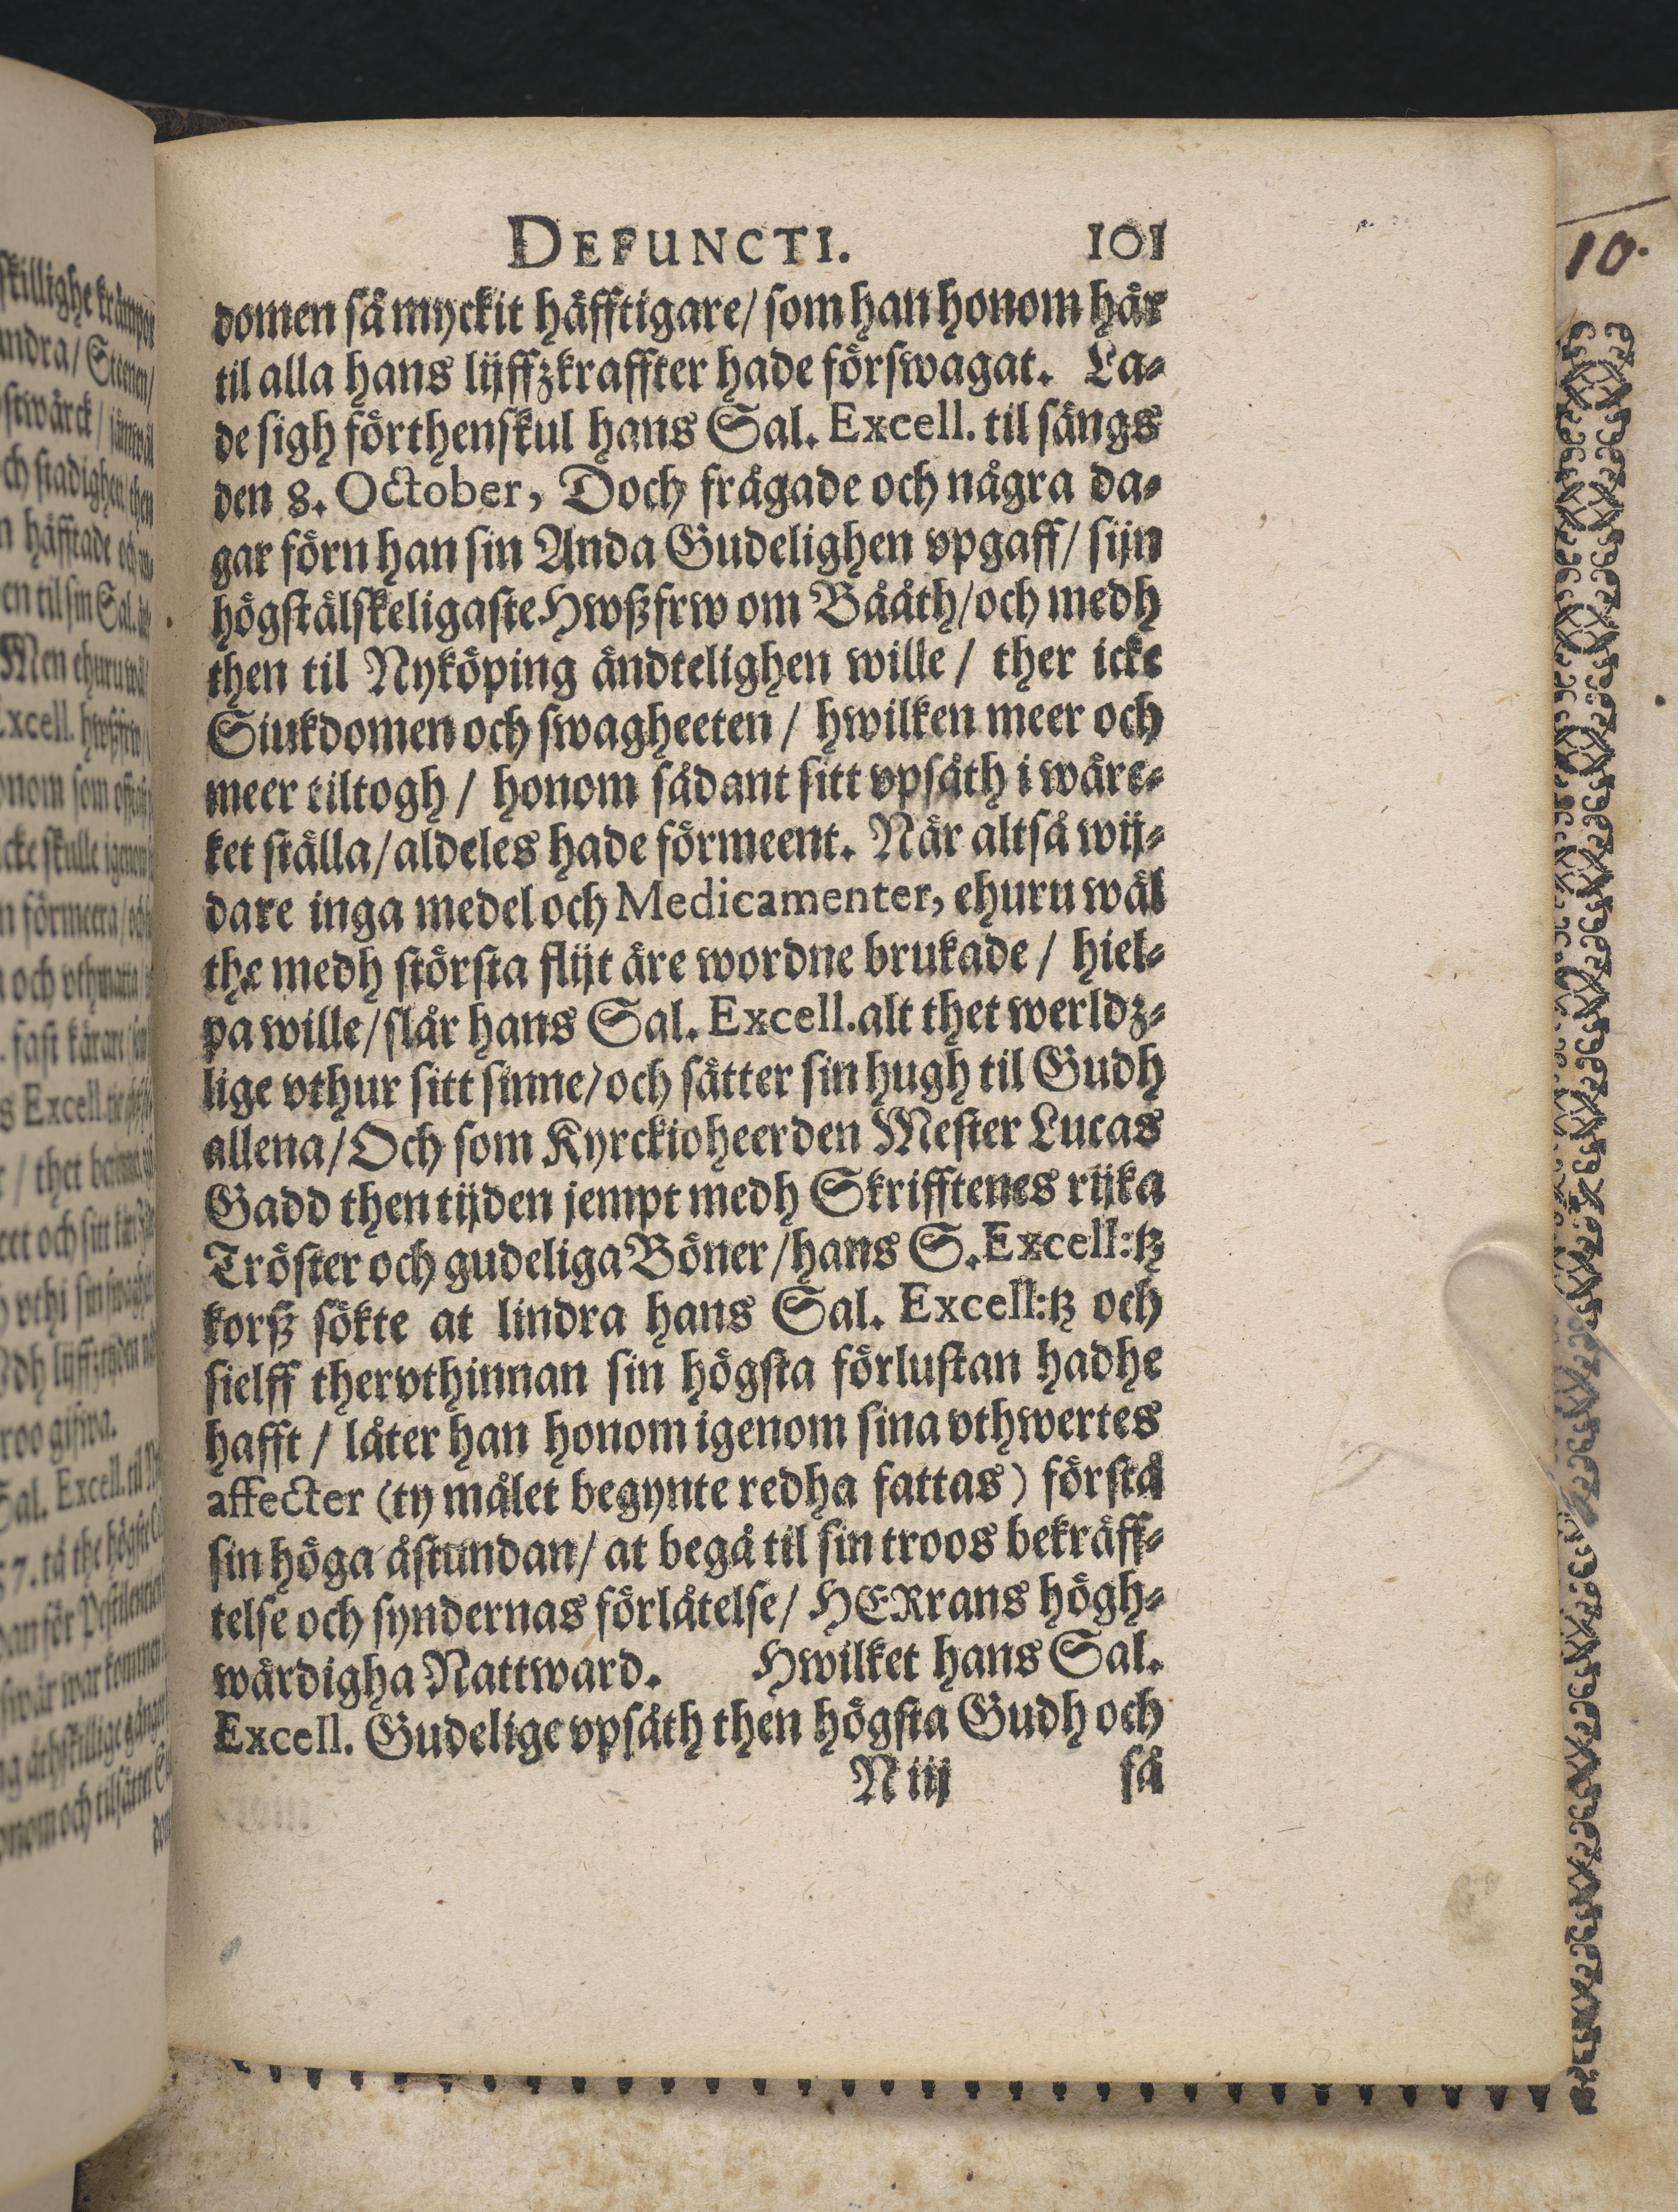 DEFUNCTI. 101
domen så myckit häfftigare/ som han honom här
til alla hans lijffzkraffter hade förswagat. La-
de sigh förthenskul hans Sal. Excell. til sängs
den 8. October, Doch frågade och några da-
gar förn han sin Anda Gudelighen vpgaff/ sijn
högstälskeligaste Hwßfrw om Bååth/och medh
then til Nyköping ändtelighen wille / ther icke
Siukdomen och swagheeten / hwilken meer och
meer tiltogh / honom sådant sitt vpsåth i wärc-
ket ställa/aldeles hade förmeent. När altså wij-
dare inga medel och Medicamenter, ehuru wäl
the medh största flijt äre wordne brukade / hiel-
pa wille/slår hans Sal. Excell.alt thet werldz-
lige vthur sitt sinne/och sätter sin hugh til Gudh
allena/Och som Kyrckioheerden Mester Lucas
Gadd then tijden jempt medh Skrifftenes rijka
Tröster och gudeliga Böner/hans S.Excell:tz
korß sökte at lindra hans Sal. Excell:tz och
sielff thervthinnan sin högsta förlustan hadhe
hafft / låter han honom igenom sina vthwertes
affecter (ty målet begynte redha fattas) förstå
sin höga åstundan/ at begå til sin troos bekräff-
telse och syndernas förlåtelse/ HERrans högh-
wärdigha Nattward. Hwilket hans Sal.
Excell. Gudelige vpsåth then högsta Gudh och
N iij så
10.